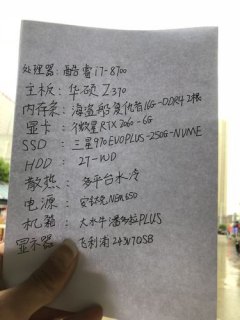 处理器：酷睿i7-8700
主板：华硕Z370
内存条：海盗船复仇者16G-DDR4 2根
显卡：微星RTX2060-6G
SSD：三星970EVOPLUS-250G-NVME
HDD：2T-WD
散热：多平台水冷
电源：安钛克NEW650
机箱：大水牛潘多拉PLUS
显示器：飞利浦243V7QSB